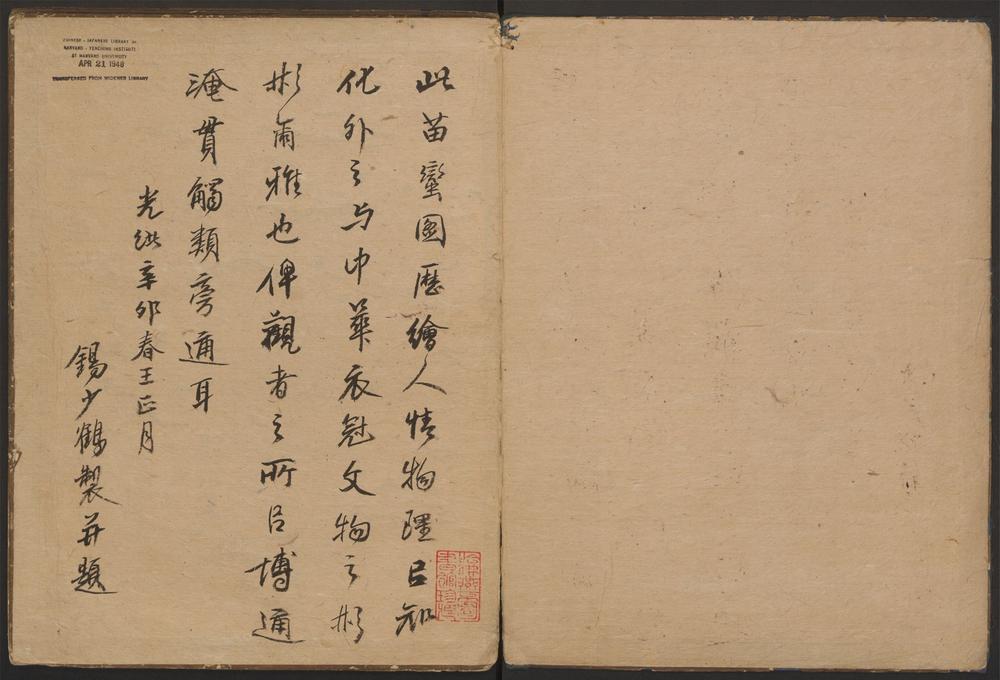 此苗蠻圖歷繪人情物理㠯知
化外之与中華衣冠文物之彬
彬爾雅也俾觀者之所㠯博通
淹貫觸類旁通耳
光緒辛卯春王正月
錫少鶴製并題
CHINESE - JAPANESE LIBRARY OF
HARVARD - YENCHING INSTITUTE
AT HARVARD UNIVERSITY
APR 21 1948
TRANSFERRED FROM WIDENER LIBRARY